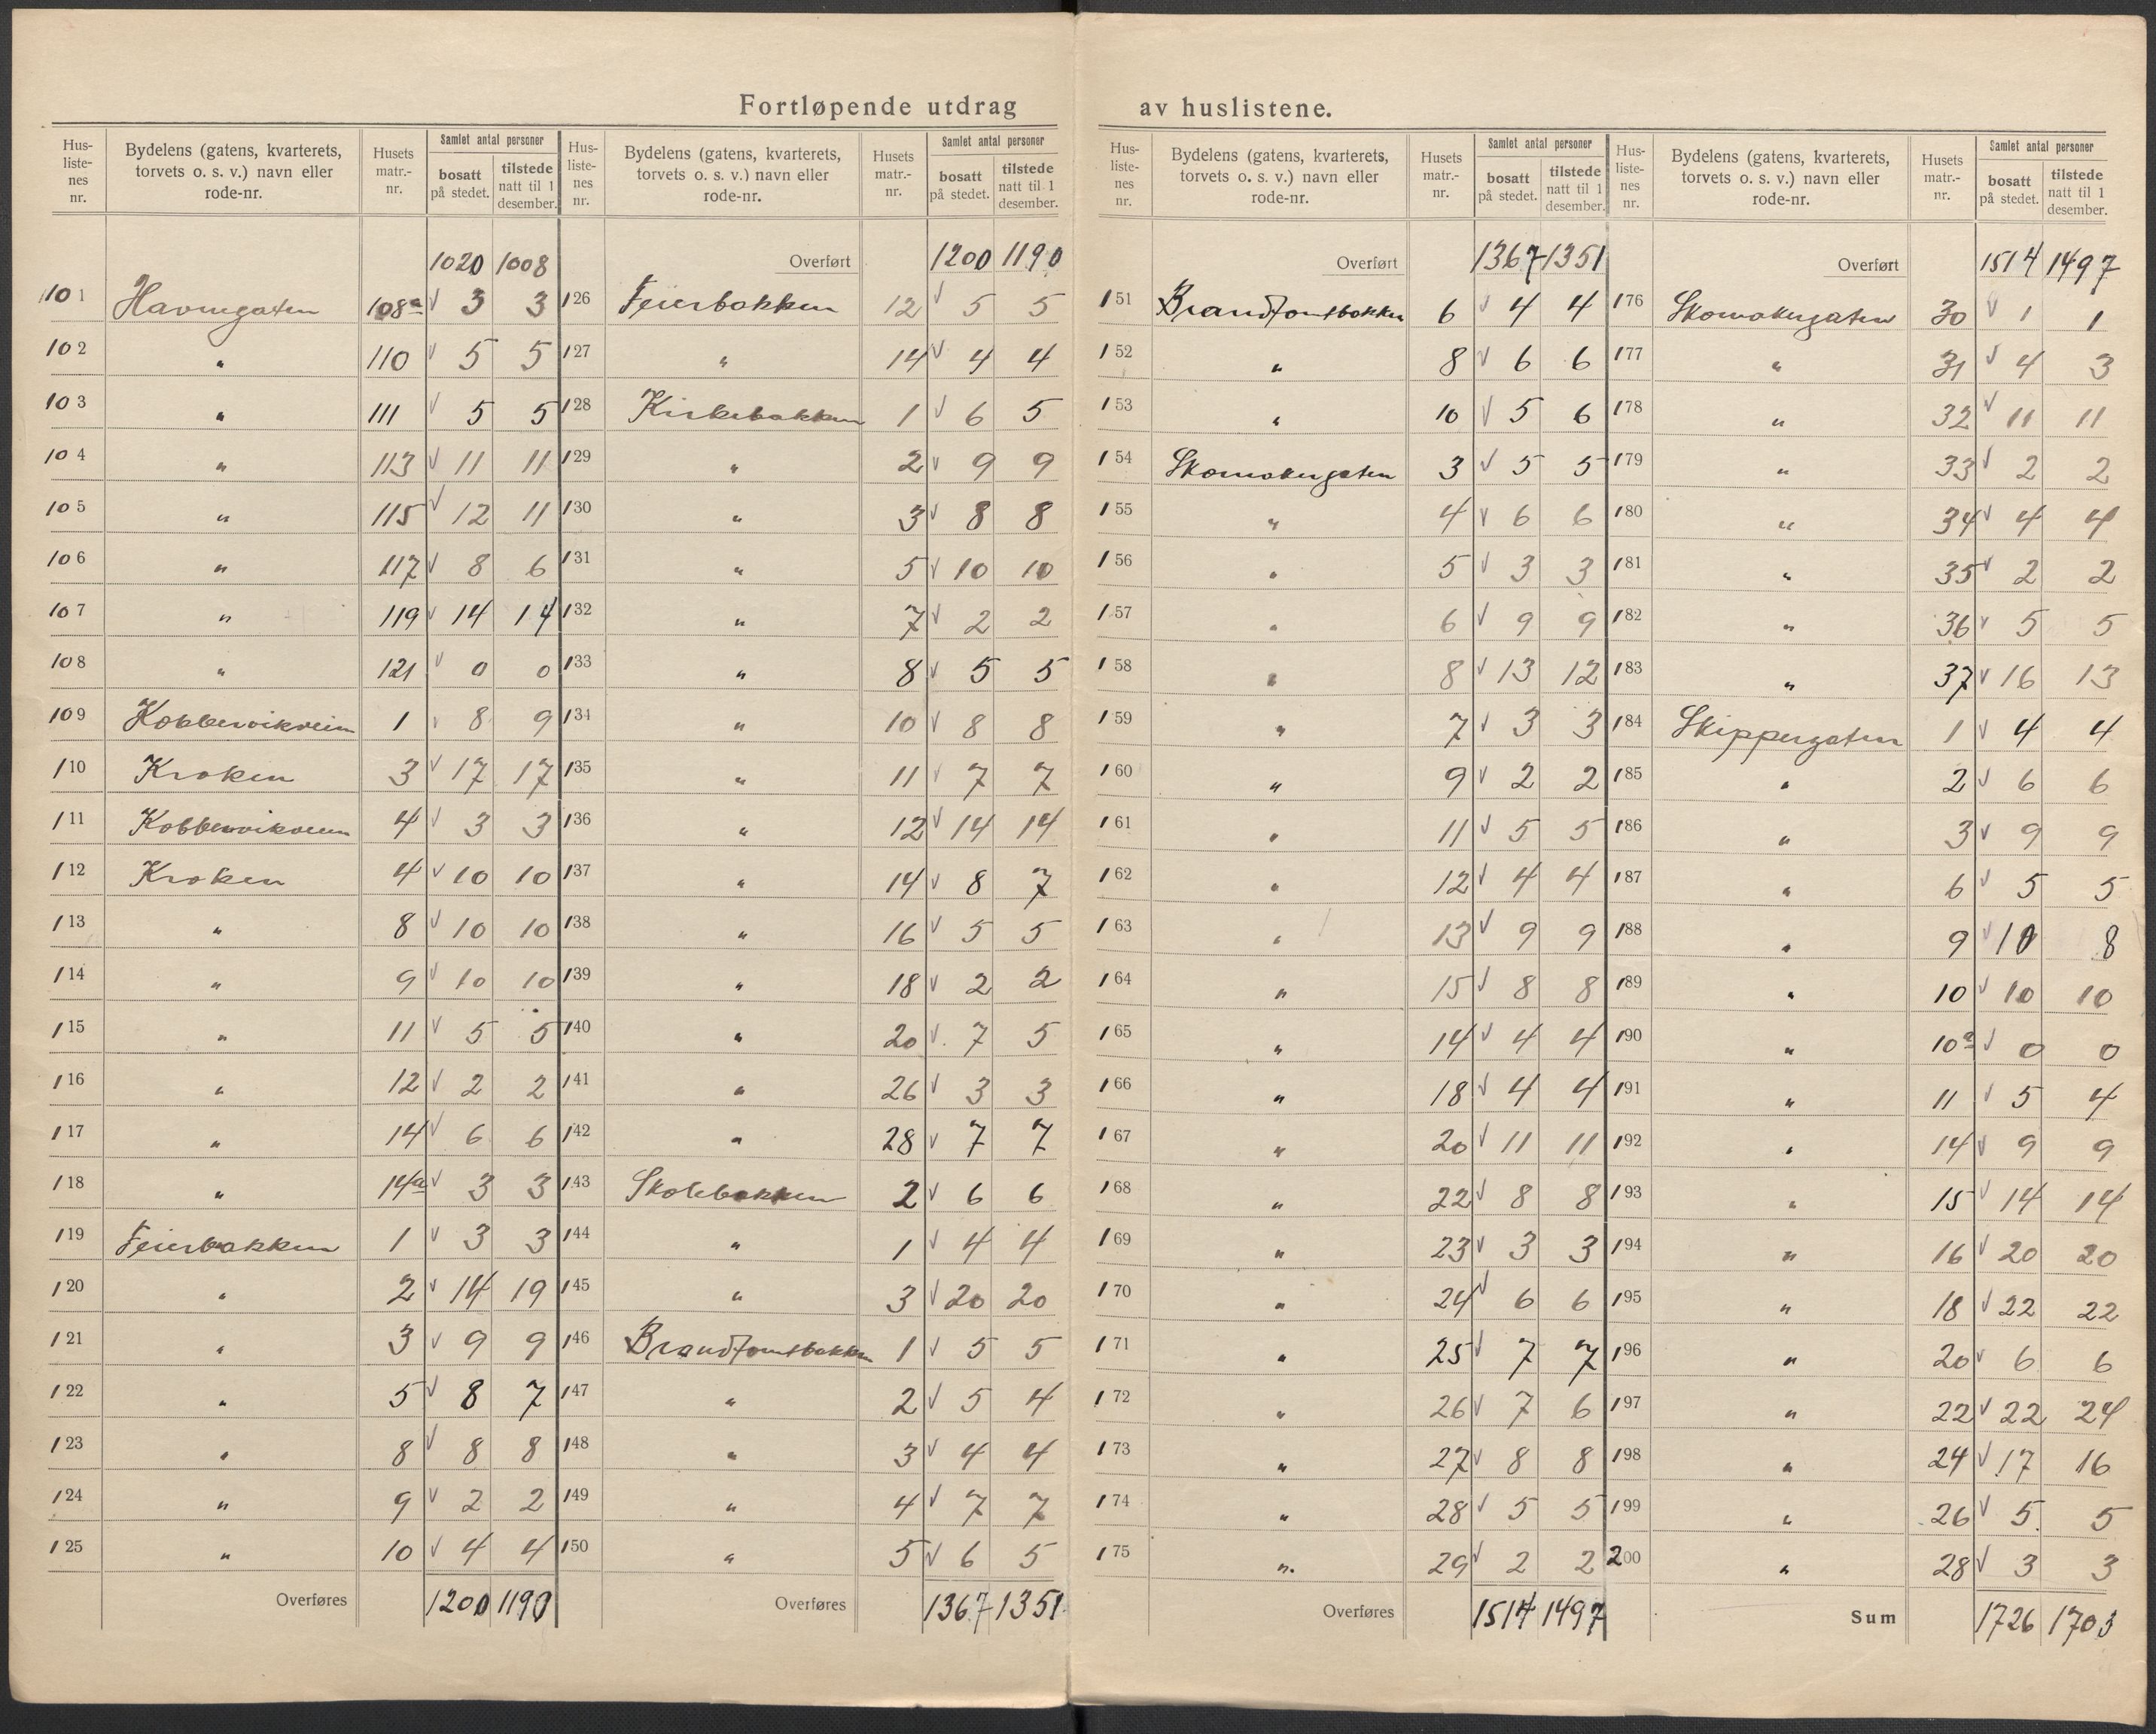 Fortløpende utdrag av huslistene.
Hus-liste-nes nr. Bydelens (gatens, kvarterets, torvets o. s. v.) navn eller rode-nr. Husets matr.-nr. Samlet antal personer bosatt på stedet. tilstede natt til 1 desember.
1020 1008
101 Havnegaten 108a √ 3 3
102 " 110 √ 5 5
103 " 111 √ 5 5
104 " 113 √ 11 11
105 " 115 √ 12 11
106 " 117 √ 8 6
107 " 119 √ 14 14
108 " 121 √ 0 0
109 Kobbervikveien 1 √ 8 9
110 Kroken 3 √ 17 17
111 Kobbervikveien 4 √ 3 3
112 Kroken 4 √ 10 10
113 " 8 √ 10 10
114 " 9 √ 10 10
115 " 11 √ 5 5
116 " 12 √ 2 2
117 " 14 √ 6 6
118 " 14a √ 3 3
119 Feierbakken 1 √ 3 3
120 " 2 √ 14 19
121 " 3 √ 9 9
122 " 5 √ 8 7
123 " 8 √ 8 8
124 " 9 √ 2 2
125 " 10 √ 4 4
Overføres 1200 1190
Hus-liste-nes nr. Bydelens (gatens, kvarterets, torvets o. s. v.) navn eller rode-nr. Husets matr.-nr. Samlet antal personer bosatt på stedet. tilstede natt til 1 desember.
Overført 1200 1190
126 Feierbakken 12 √ 5 5
127 " 14 √ 4 4
128 Kirkebakken 1 √ 6 5
129 " 2 √ 9 9
130 " 3 √ 8 8
131 " 5 √ 10 10
132 " 7 √ 2 2
133 " 8 √ 5 5
134 " 10 √ 8 8
135 " 11 √ 7 7
136 " 12 √ 14 14
137 " 14 √ 8 7
138 " 16 √ 5 5
139 " 18 √ 2 2
140 " 20 √ 7 5
141 " 26 √ 3 3
142 " 28 √ 7 7
143 Skolebakken 2 √ 6 6
144 " 1 √ 4 4
145 " 3 √ 20 20
146 Brandtomtbakken 1 √ 5 5
147 " 2 √ 5 4
148 " 3 √ 4 4
149 " 4 √ 7 7
150 " 5 √ 6 5
Overføres 1367 1351
Hus-liste-nes nr. Bydelens (gatens, kvarterets, torvets o. s. v.) navn eller rode-nr. Husets matr.-nr. Samlet antal personer bosatt på stedet. tilstede natt til 1 desember.
Overført 1367 1351
151 Brandtomtbakken 6 √ 4 4
152 " 8 √ 6 6
153 " 10 √ 5 6
154 Skomakergaten 3 √ 5 5
155 " 4 √ 6 6
156 " 5 √ 3 3
157 " 6 √ 9 9
158 " 8 √ 13 12
159 " 7 √ 3 3
160 " 9 √ 2 2
161 " 11 √ 5 5
162 " 12 √ 4 4
163 " 13 √ 9 9
164 " 15 √ 8 8
165 " 14 √ 4 4
166 " 18 √ 4 4
167 " 20 √ 11 11
168 " 22 √ 8 8
169 " 23 √ 3 3
170 " 24 √ 6 6
171 " 25 √ 7 7
172 " 26 √ 7 6
173 " 27 √ 8 8
174 " 28 √ 5 5
175 " 29 √ 2 2
Overføres 1514 1497
Hus-liste-nes nr. Bydelens (gatens, kvarterets, torvets o. s. v.) navn eller rode-nr. Husets matr.-nr. Samlet antal personer bosatt på stedet. tilstede natt til 1 desember.
Overført 1514 1497
176 Skomakergaten 30 √ 1 1
177 " 31 √ 4 3
178 " 32 √ 11 11
179 " 33 √ 2 2
180 " 34 √ 4 4
181 " 35 √ 2 2
182 " 36 √ 5 5
183 " 37 √ 16 13
184 Skippergaten 1 √ 4 4
185 " 2 √ 6 6
186 " 3 √ 9 9
187 " 6 √ 5 5
188 " 9 √ 10 8
189 " 10 √ 10 10
190 " 10a √ 0 0
191 " 11 √ 5 4
192 " 14 √ 9 9
193 " 15 √ 14 14
194 " 16 √ 20 20
195 " 18 √ 22 22
196 " 20 √ 6 6
197 " 22 √ 22 24
198 " 24 √ 17 16
199 " 26 √ 5 5
200 " 28 √ 3 3
Sum 1726 1703